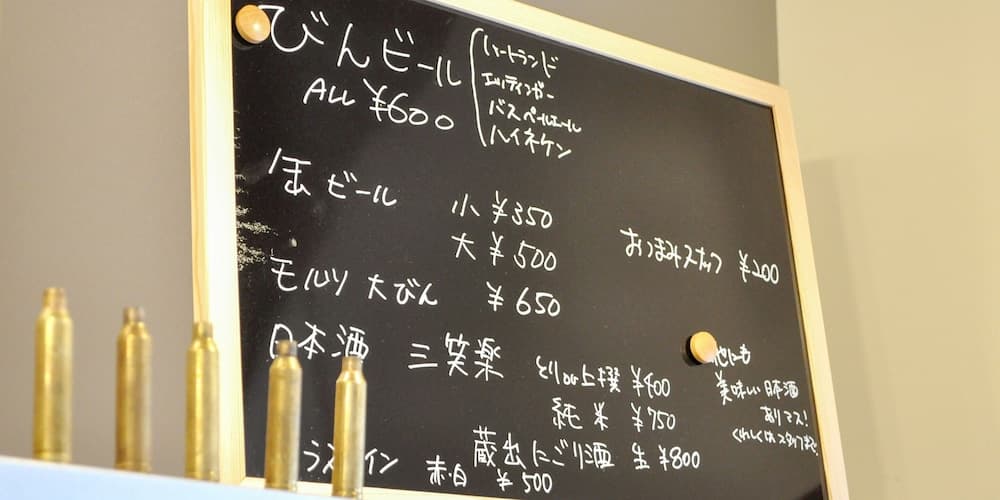 びんビール
ALL ¥600
ハートランド
エルディンガー
バスペールエール
ハイネケン
缶ビール 小 ¥350
大 ¥500
おつまみスナック ¥200
モルツ 大びん ¥650
日本酒 三笑楽 上撰 ¥400
純米 ¥750
蔵出にごり酒 生 ¥800
グラスワイン 赤・白 ¥500
他にも
美味しい日本酒
ありマス!
くわしくはスタッフまで